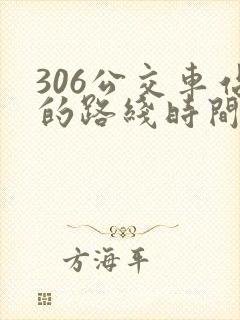 306公交車
的路綫時間
方海平